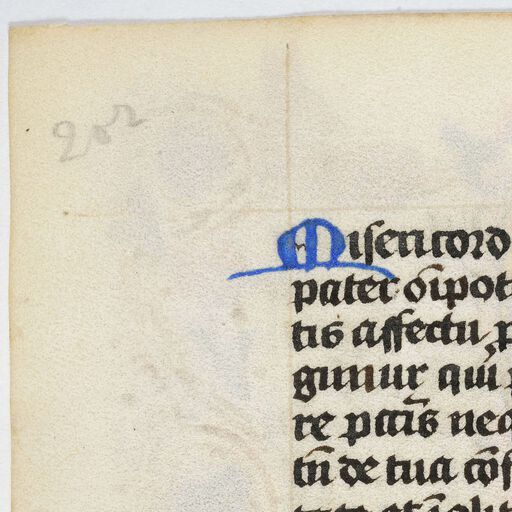 202
Misericord
pater oīpot
tis affectu p
gimur qui
re pctīs nec
tñ de tua cōf